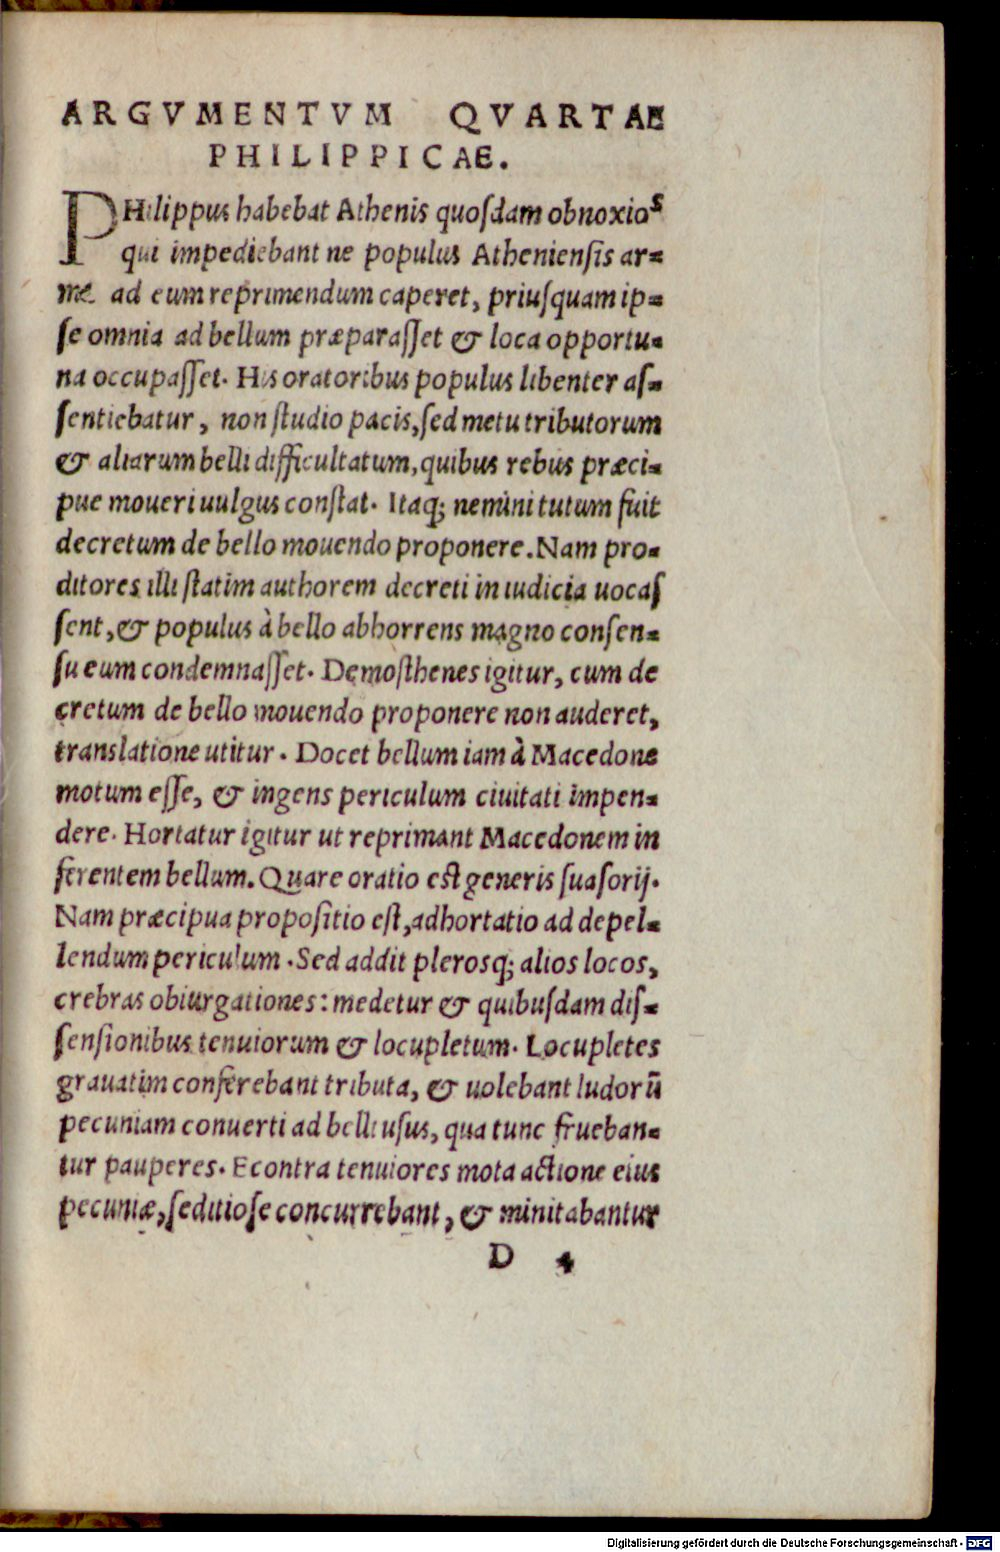 ARGVMENTVM QVARTAE
PHILIPPICAE.
PHilippus habebat Athenis quoſdam obnoxios
qui impediebant ne populus Athenienſis ar=
ma ad eum reprimendum caperet, priuſquam ip=
ſe omnia ad bellum præparaſſet & loca opportu=
na occupaſſet. His oratoribus populus libenter aſ=
ſentiebatur, non ſtudio pacis, ſed metu tributorum
& aliarum belli difficultatum, quibus rebus præci=
pue moueri uulgus conſtat. Itaq; nemini tutum fuit
decretum de bello mouendo proponere. Nam pro=
ditores illi ſtatim authorem decreti in iudicia uocaſ
ſent, & populus à bello abhorrens magno conſen=
ſu eum condemnaſſet. Demoſthenes igitur, cum de
cretum de bello mouendo proponere non auderet,
translatione utitur. Docet bellum iam à Macedone
motum eſſe, & ingens periculum ciuitati impen=
dere. Hortatur igitur ut reprimant Macedonem in
ferentem bellum. Quare oratio eſt generis ſuaſorij.
Nam præcipua propoſitio eſt, adhortatio ad depel=
lendum periculum. Sed addit plerosq; alios locos,
crebras obiurgationes: medetur & quibuſdam diſ=
ſenſionibus tenuiorum & locupletum. Locupletes
grauatim conferebant tributa, & uolebant ludorū
pecuniam conuerti ad belli uſus, qua tunc frueban=
tur pauperes. Econtra tenuiores mota actione eius
pecuniæ, ſeditioſe concurrebant, & minitabantur
D 4
Digitalisierung gefördert durch die Deutsche Forschungsgemeinschaft - DFG